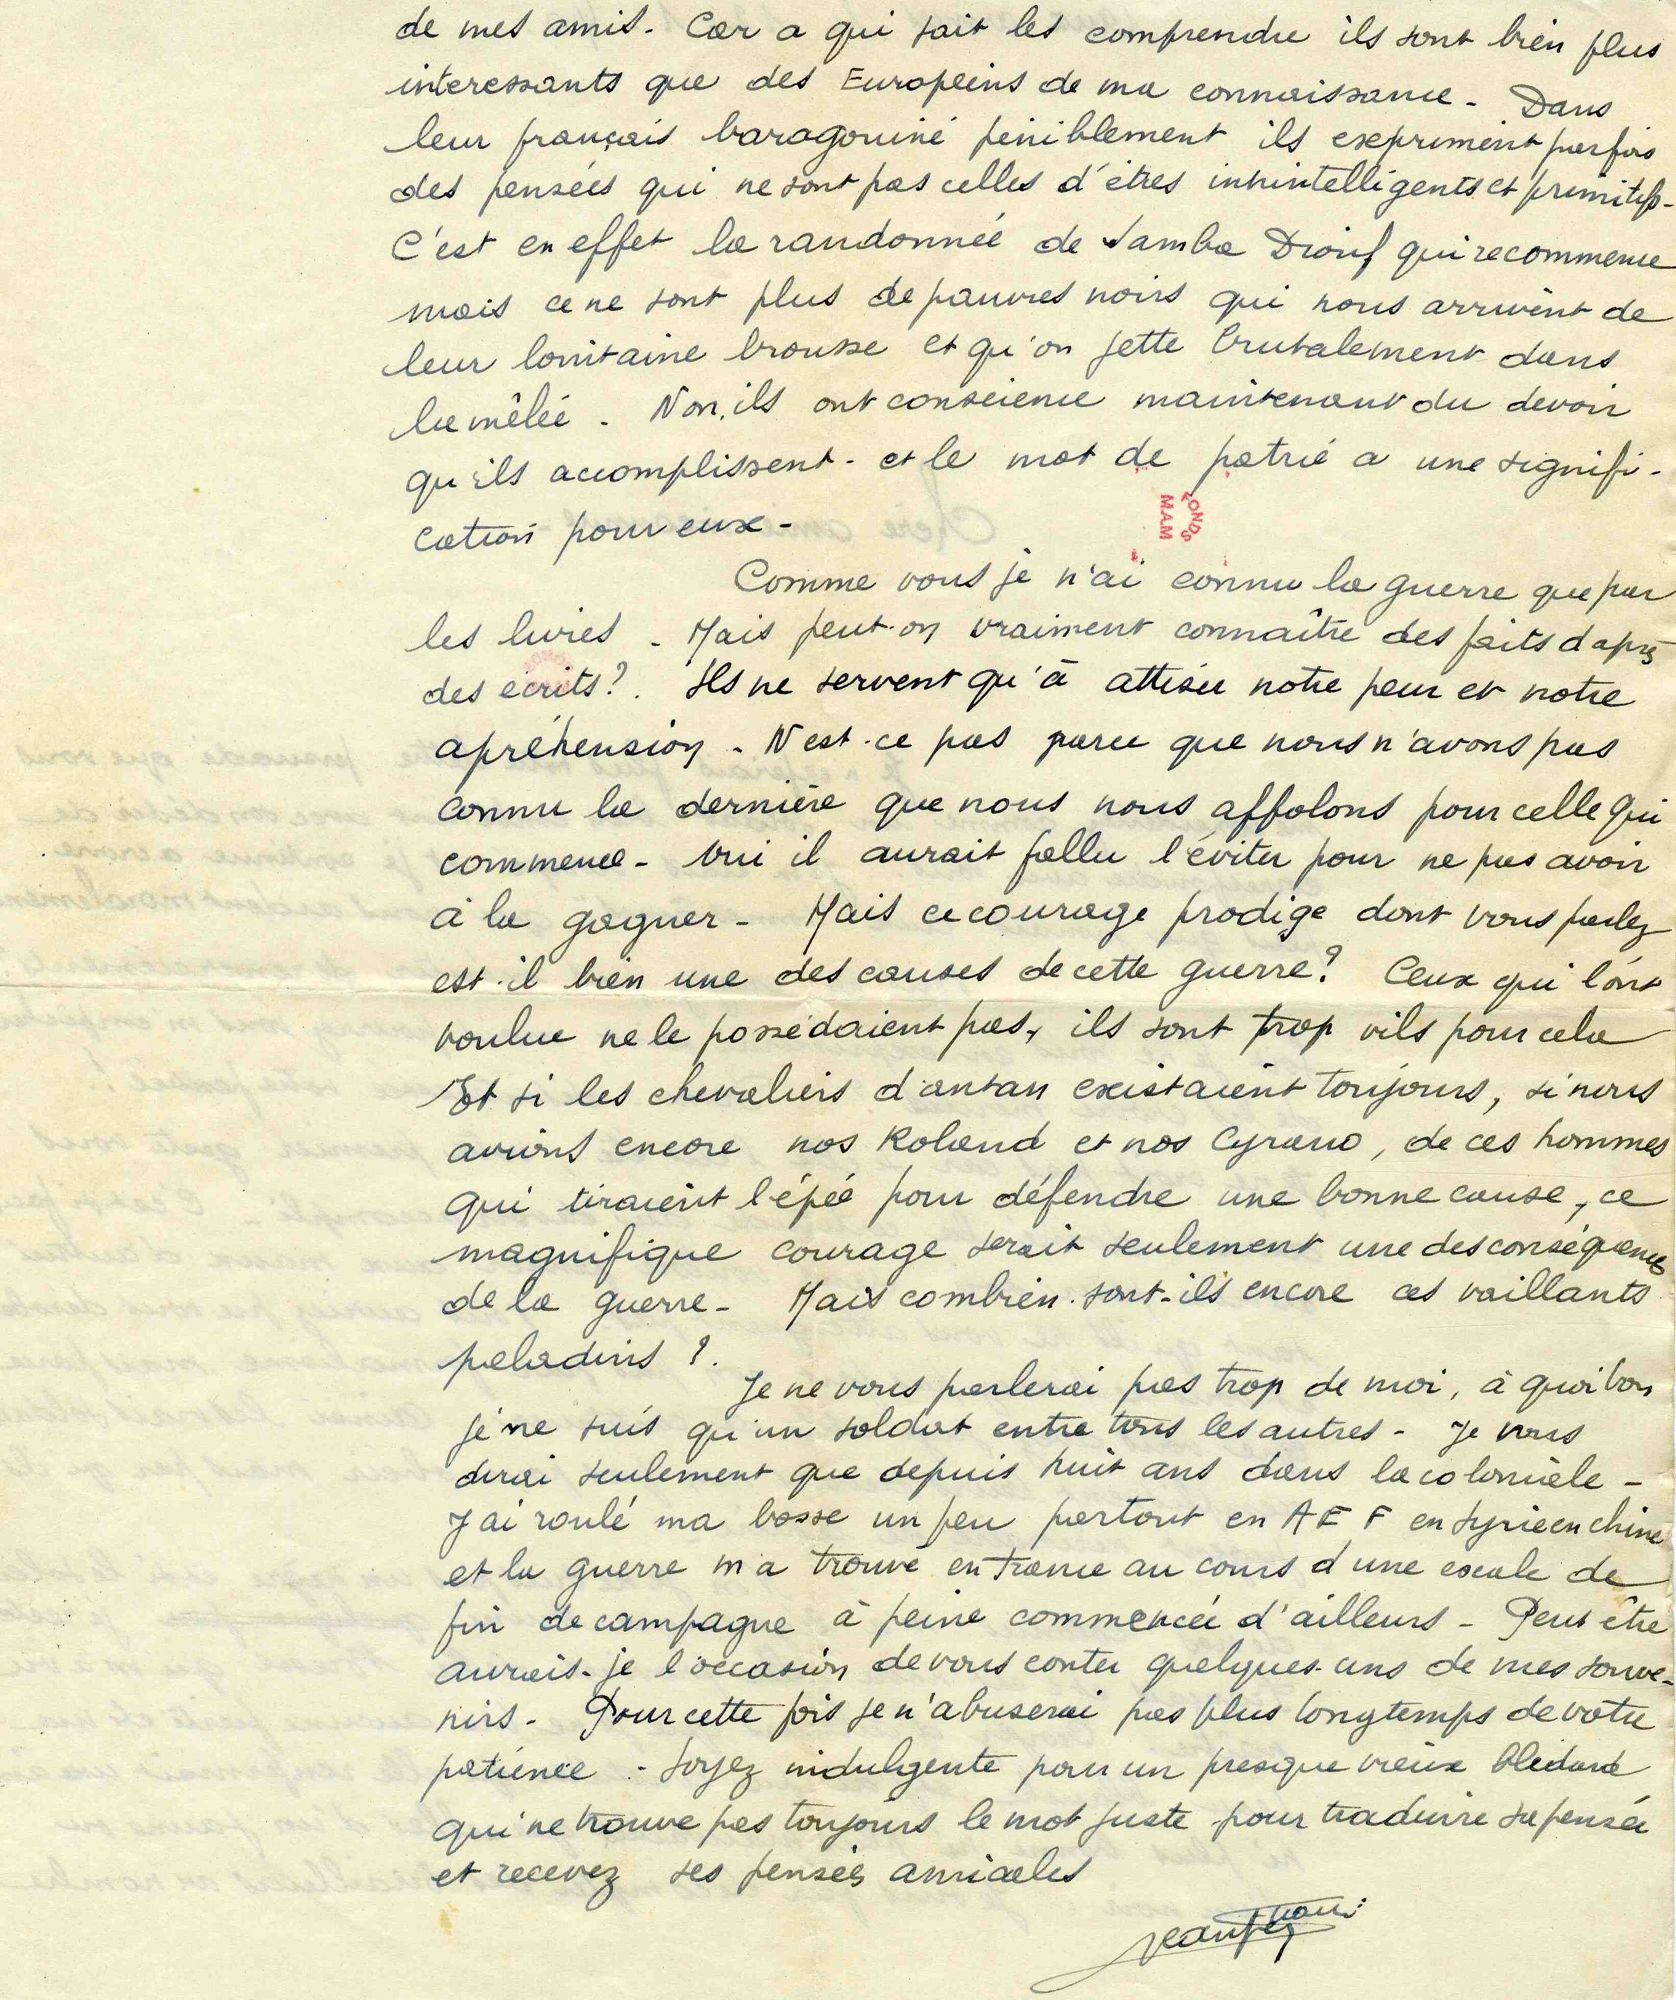 de mes amis. Car a qui sait les comprendre ils sont bien plus
interessants que des Européins de ma connaissance - Dans
leur français baragouiné péniblement ils expriment parfois
des pensées qui ne sont pas celles d'êtres inintelligents et primitifs -
C'est en effet la randonnée de Samba Diouf qui recommence
mais ce ne sont plus de pauvres noirs qui nous arrivent de
leur lointaine brousse et qu'on jette brutalement dans
la mêlée. Non, ils ont conscience maintenant du devoir
qu'ils accomplissent - et le mot de patrie a une signifi-
cation pour eux -
FONDS
MAM
Comme vous je n'ai connu la guerre que par
les livres - Mais peut-on vraiment connaître des faits d'après
des écrits ?. Ils ne servent qu'à attiser notre peur et notre
apréhension - N'est-ce pas parce que nous n'avons pas
connu la dernière que nous nous affolons pour celle qui
commence - Oui il aurait fallu l'éviter pour ne pas avoir
à la gagner - Mais ce courage prodige dont vous parlez
est-il bien une des causes de cette guerre ? Ceux qui l'ont
voulue ne le possédaient pas, ils sont trop vils pour cela
Et si les chevaliers d'antan existaient toujours, si nous
avions encore nos Roland et nos Cyrano, de ces hommes
qui tiraient l'épée pour défendre une bonne cause, ce
magnifique courage serait seulement une des conséquences
de la guerre - Mais combien sont-ils encore ces vaillants
paladins ?.
Je ne vous parlerai pas trop de moi, à quoi bon
je ne suis qu'un soldat entre tous les autres - Je vous
dirai seulement que depuis huit ans dans la coloniale -
J'ai roulé ma bosse un peu partout en AEF en Syrie en Chine
et la guerre m'a trouvé en France au cours d'une escale de
fin de campagne à peine commencée d'ailleurs - Peut être
aurais-je l'occasion de vous conter quelques-uns de mes souve-
nirs - Pour cette fois je n'abuserai pas plus longtemps de votre
patience - Soyez indulgente pour un presque vieux blédard
qui ne trouve pas toujours le mot juste pour traduire sa pensée
et recevez ses pensées amicales